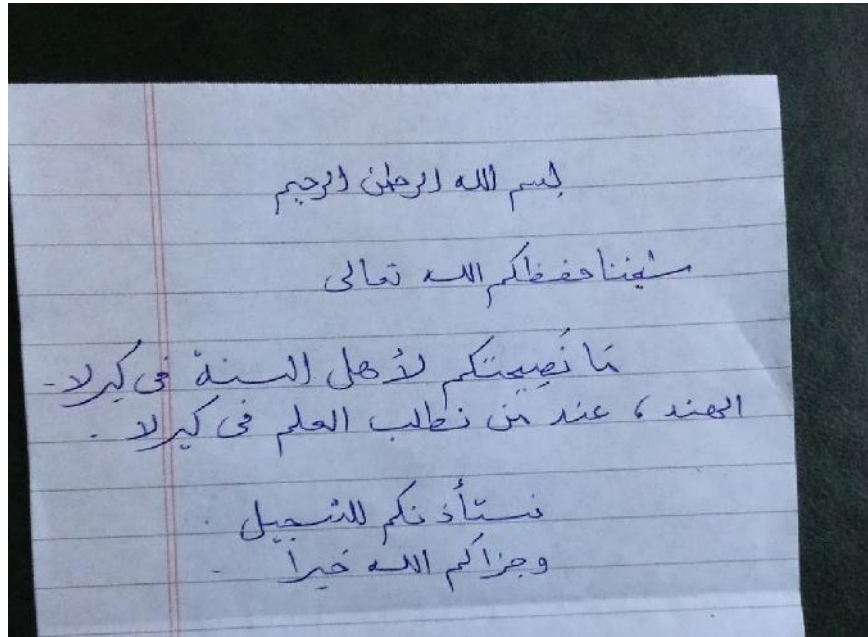 بسم الله الرحمن الرحيم
شيخنا حفظكم الله تعالى
مَا نَصِيحتكم لأهل السنة في كيرلا -
الهند، عند مَن نطلب العلم في كيرلا .
نستأذنكم للتسجيل .
وجزاكم الله خيرا .